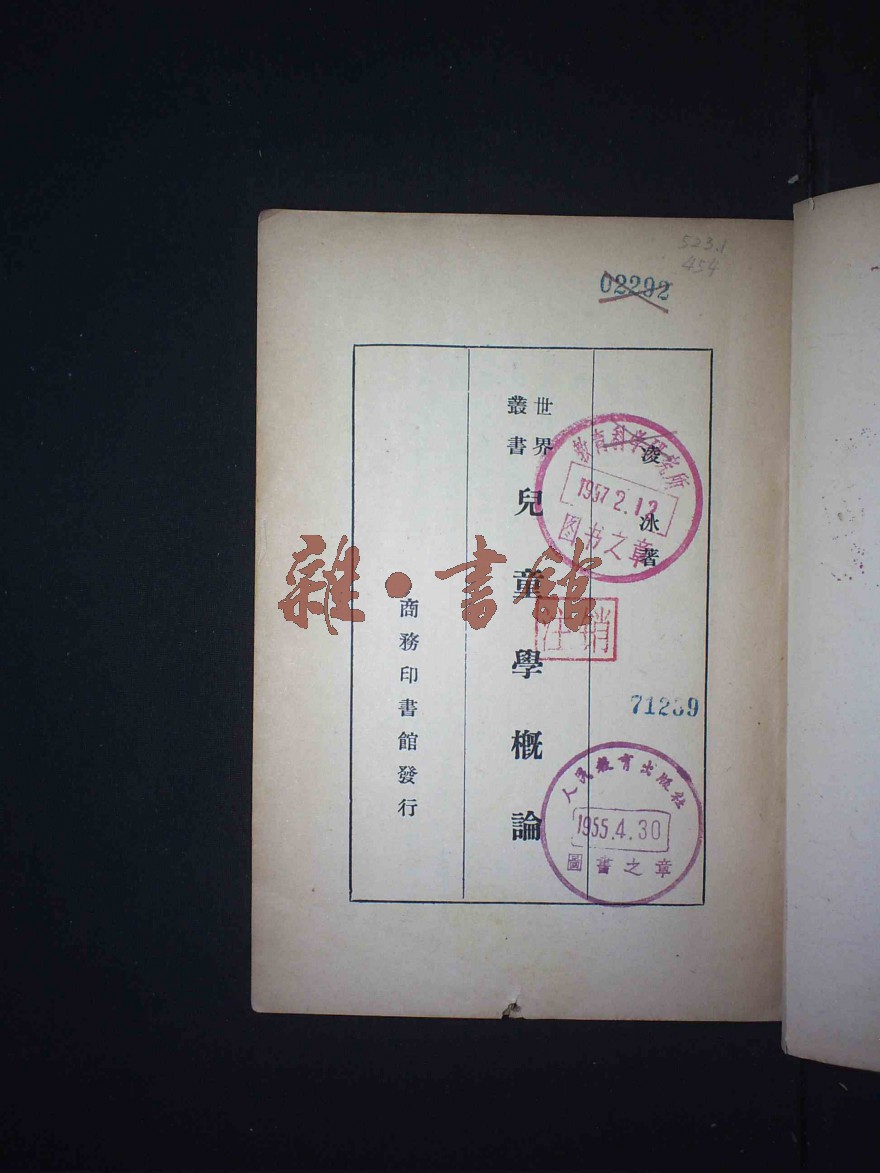 523.1
454
02292
凌冰著
世界
叢書
兒童學概論
商務印書館發行
教育科學研究所
1957.2.12
图书之章
注销
71239
人民教育出版社
1955.4.30
圖書之章
雜·書館